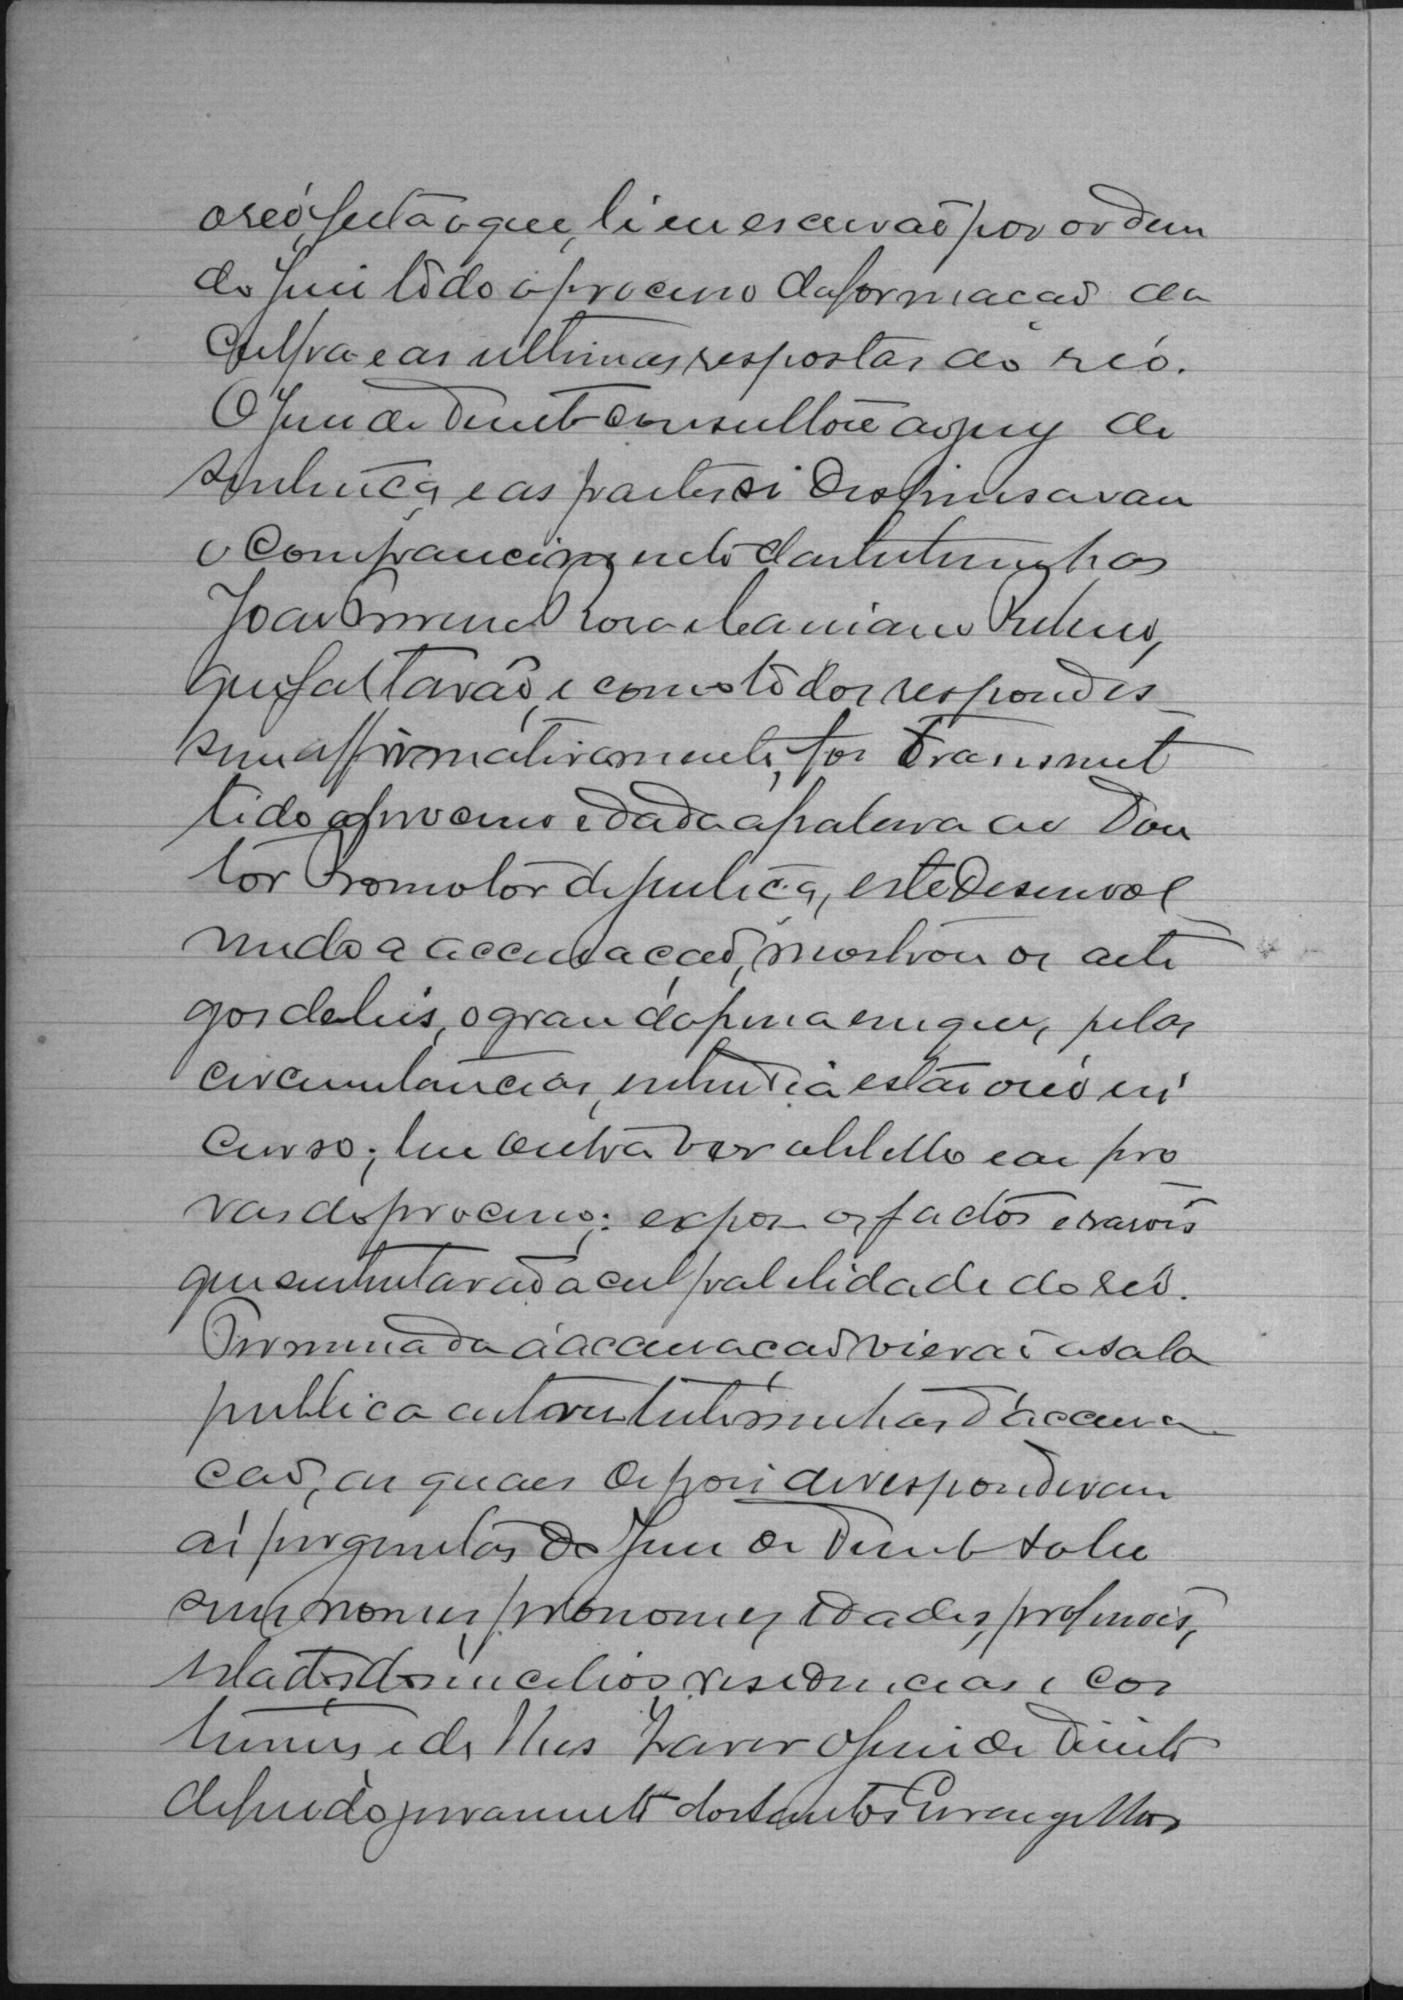 o reó, feita o que, li eu escrivaõ por ordem
do Juiz tôdo o processo da formacaõ da
culpa e as ultimas respostas do reó.
O Juiz de Direito consultou ao jury de
sentença e as partes si dispensavam
o comparecimento das testemunhas
Joaõ Rosa e Camiano
que faltaraõ, e como tôdos respondes-
sem affirmativamente, foi transmet
tido o processo e dada a palavra ao Dou
tor Promotor de Justiça, este desenvol
vendo a accusaçaõ, mostrou os arti
gos de leis, o grau da pena em que, pelas
circunstancias, entendia estar o reó in
curso; leu outra vez o libello e as pro
vas do processo: expoz os factos e rasoes
que sustentavaõ a culpabilidade do reó.
Terminada a accusacaõ vieraõ a sala
publica as testemunhas d'accusa
caõ, as quaes depois de responderam
ás perguntas do Juiz de Direito sobre
seus nomes, pronomes, idades, profissões,
estados, domicilios, residencias e cos
tumes e de lhes haver o Juiz de Direito
deferido juramento dos Santos Evangelhos